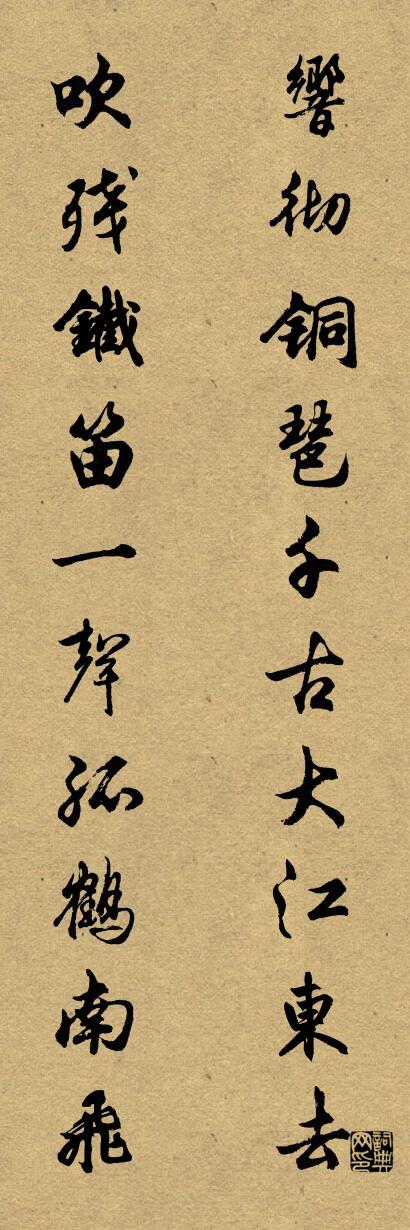 響彻铜琶千古大江東去
吹残鐵笛一聲孤鶴南飛
詞典网印